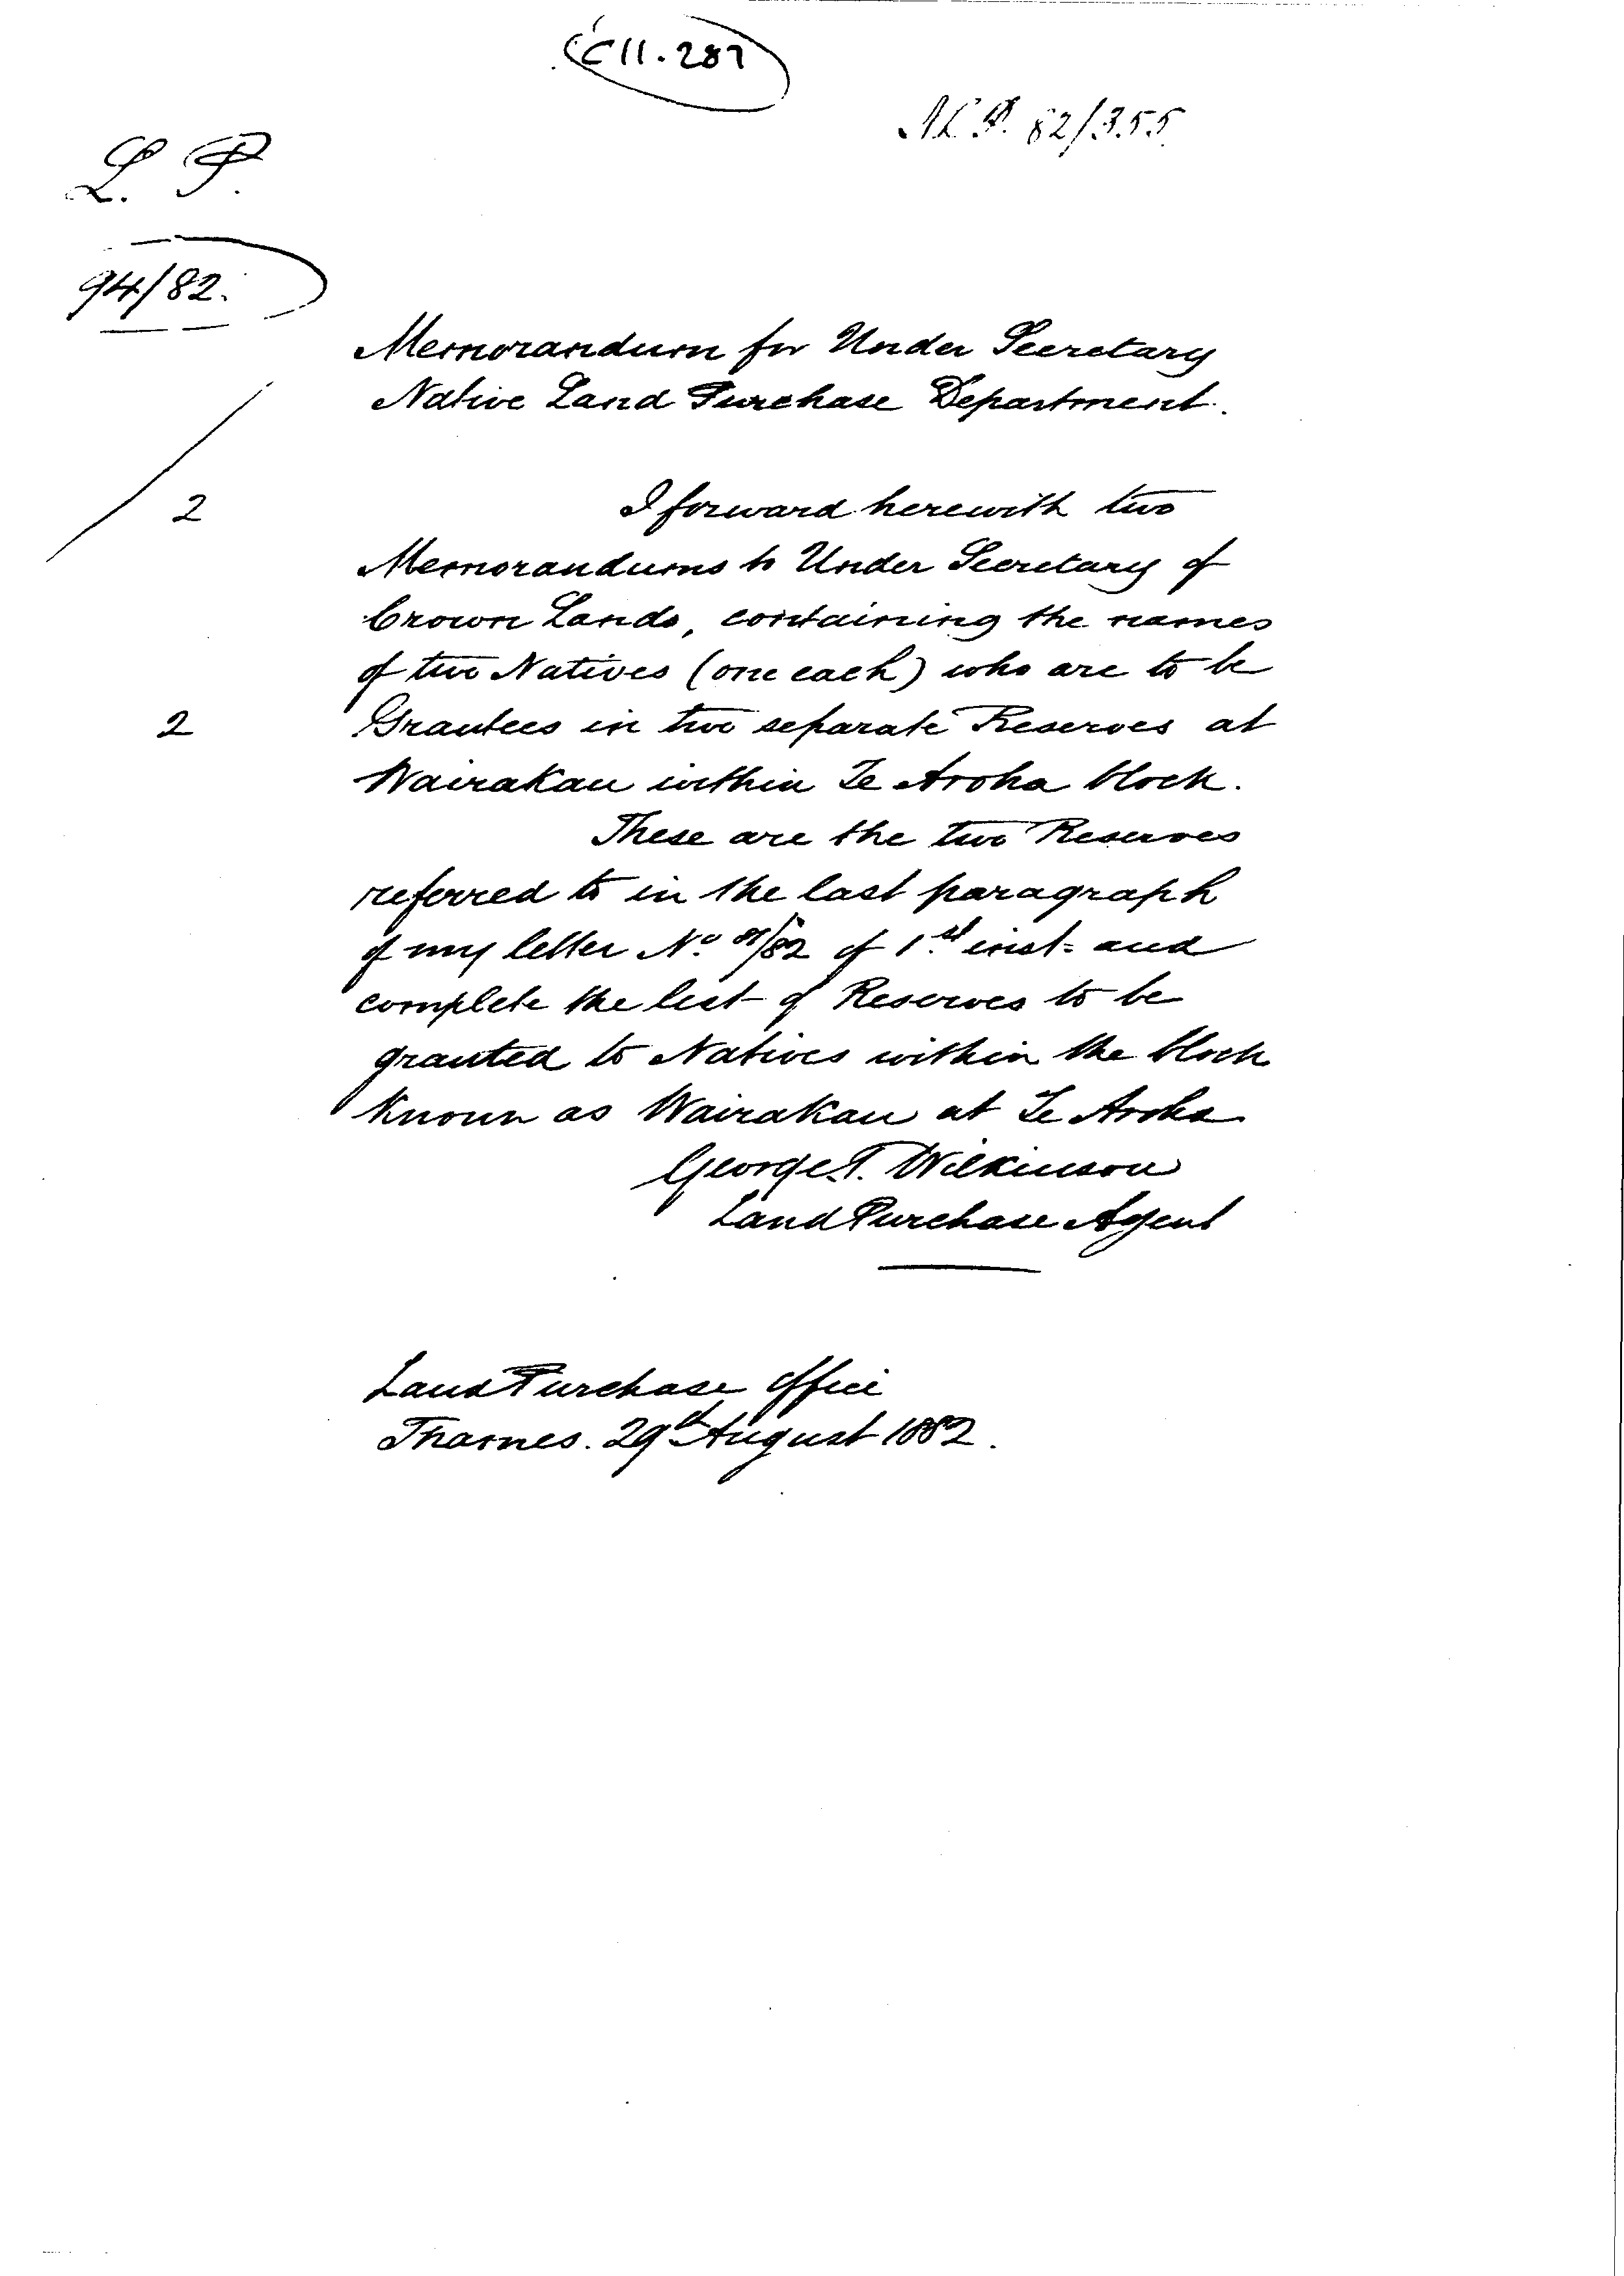 C11.287
N.L.P. 82/355.
L. P.
94/82.
Memorandum for Under Secretary
Native Land Purchase Department.
2 I forward herewith two
Memorandums to Under Secretary of
Crown Lands, containing the names
of two Natives (one each) who are to be
2 Grantees in two separate Reserves at
Wairakau within Te Aroha block.
These are the two Reserves
referred to in the last paragraph
of my letter No. /82 of 1st inst. and
complete the list of Reserves to be
granted to Natives within the block
Known as Wairakau at Te Aroha
George T. Wilkinson
Land Purchase Agent
Land Purchase Office
Thames. 29th August 1882.